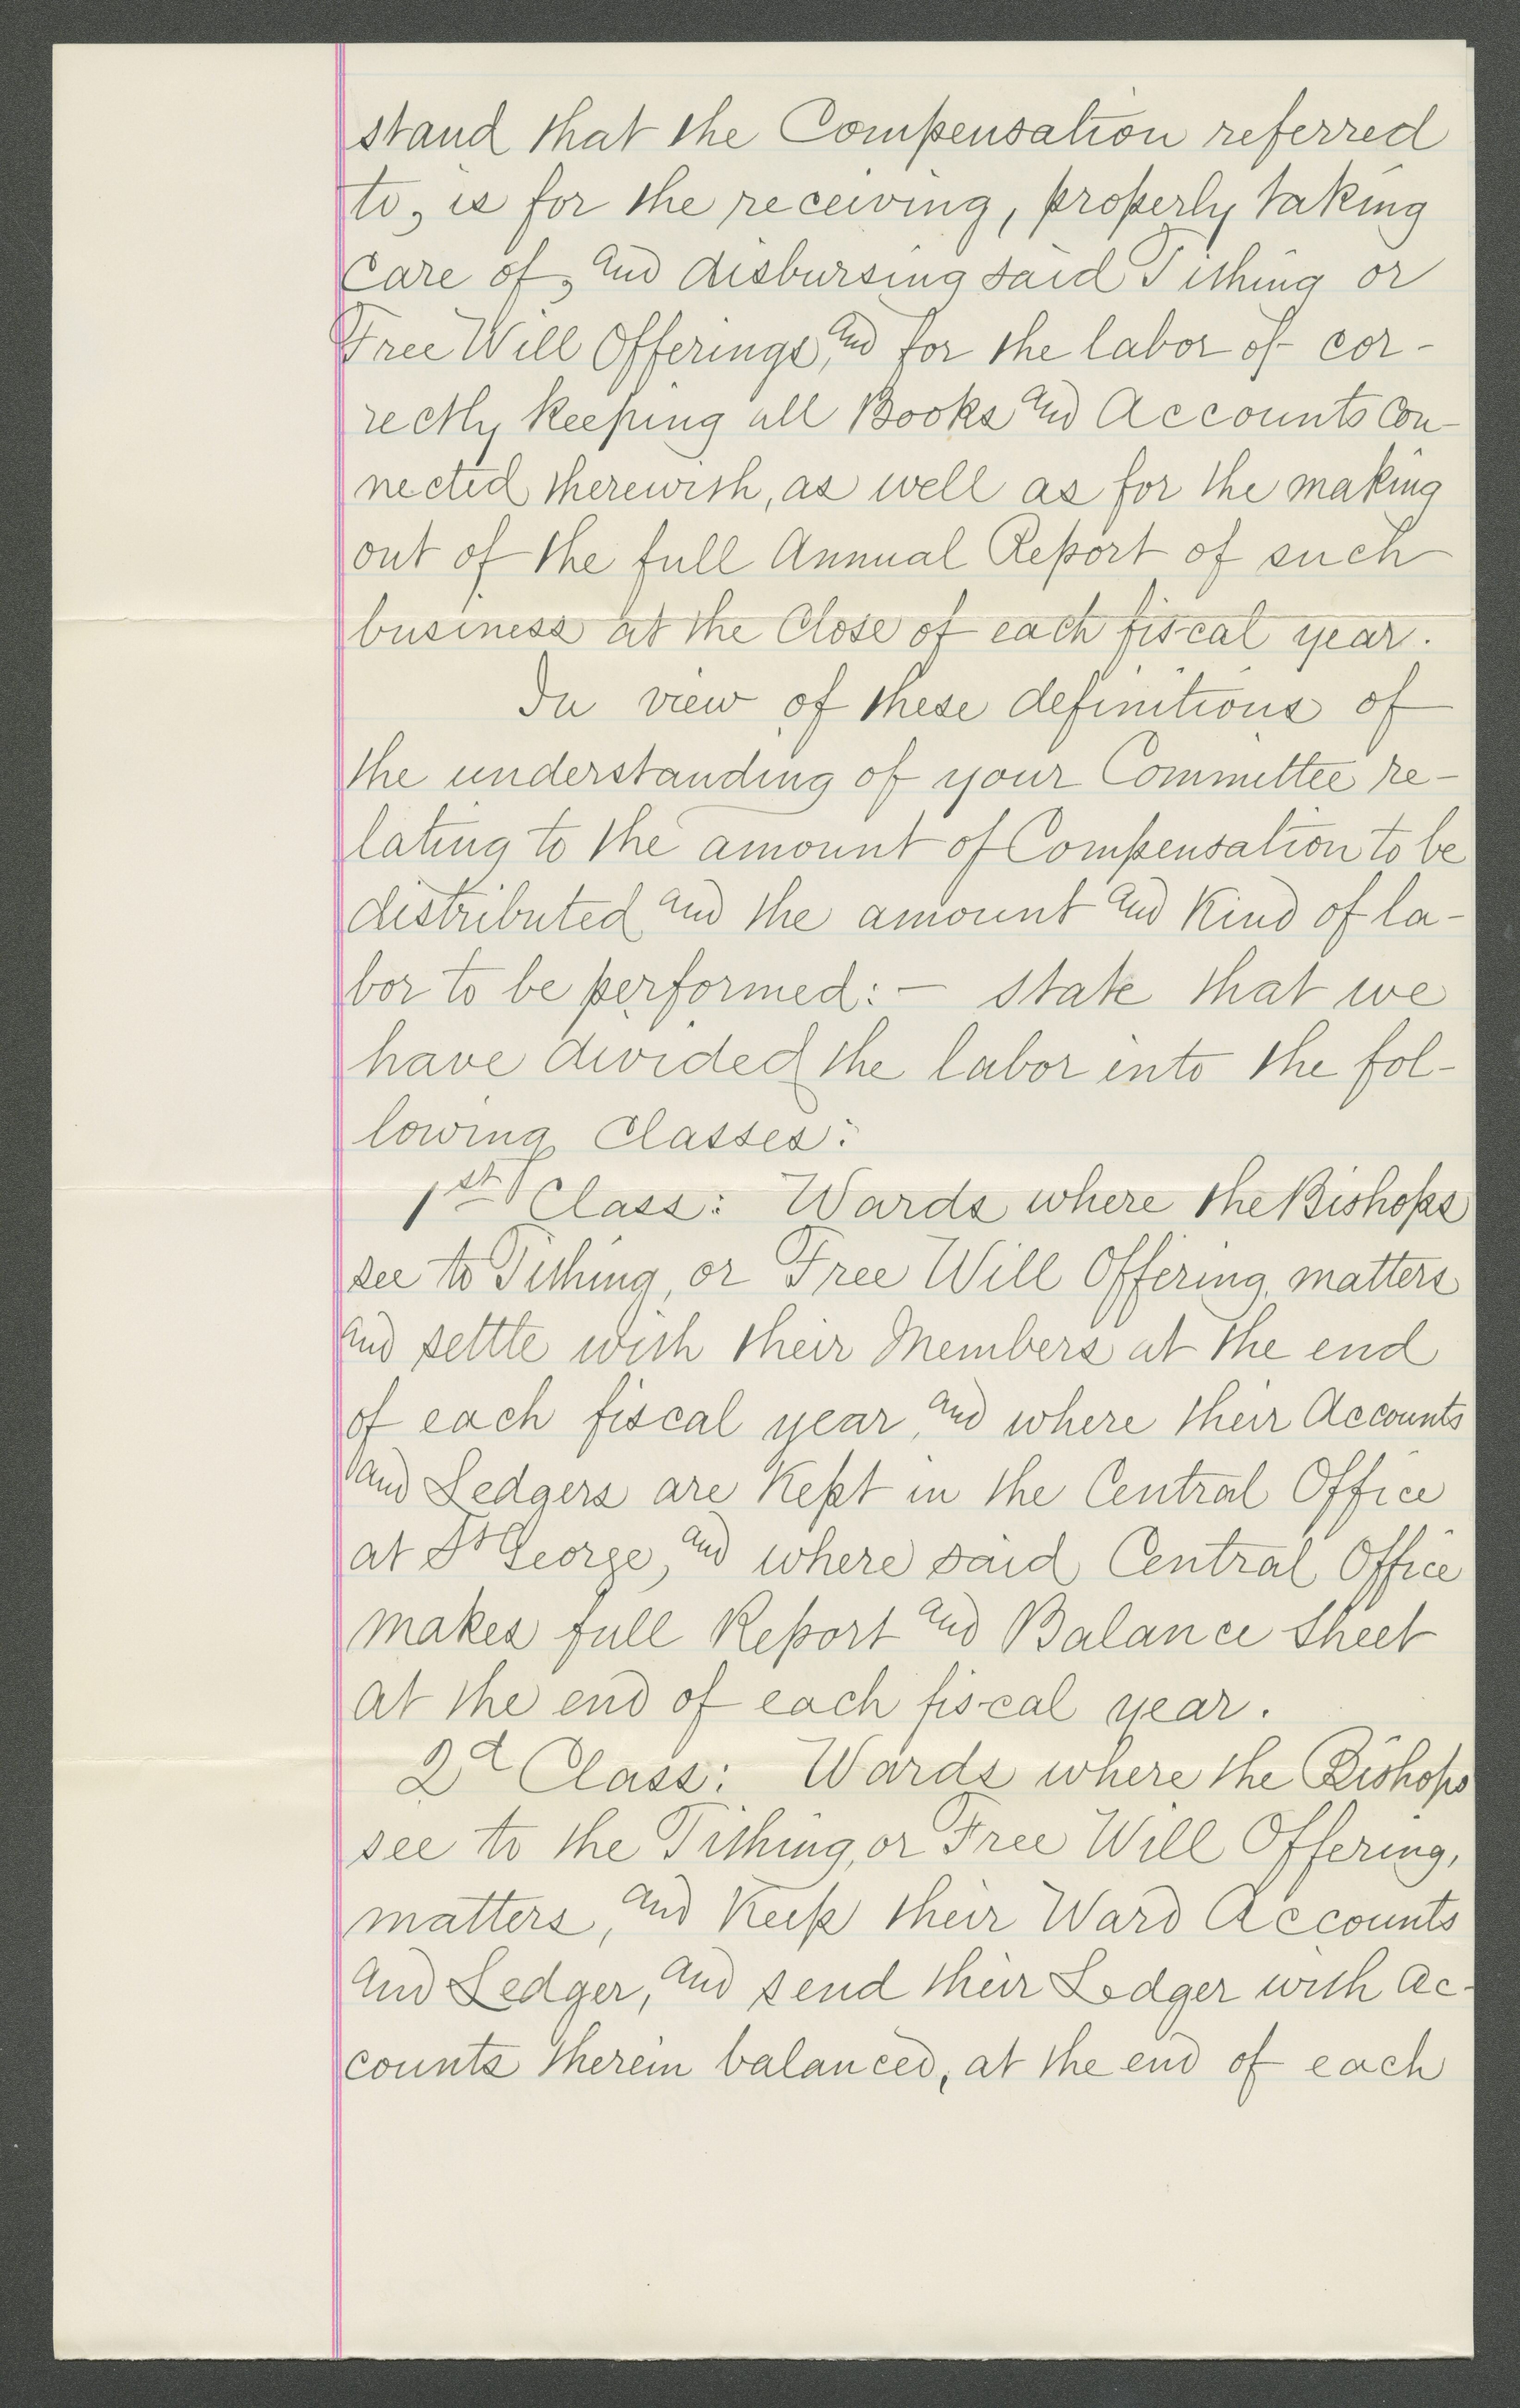 stand that the Compensation referred
to, is for the receiving, properly taking
care of, and disbursing said Tithing or
Free Will Offerings, and for the labor of cor-
rectly keeping all Books and Accounts con-
nected therewith, as well as for the making
out of the full Annual Report of such
business at the Close of each fiscal year.
In view of these definitions of
the understanding of your Committee re-
lating to the amount of Compensation to be
distributed and the amount and kind of la-
bor to be performed: - state that we
have divided the labor into the fol-
lowing Classes:
1st Class: Wards where the Bishops
see to Tithing, or Free Will Offering, matters
and settle with their Members at the end
of each fiscal year, and where their Accounts
and Ledgers are kept in the Central Office
at St George, and where said Central Office
makes full Report and Balance Sheet
at the end of each fiscal year.
2d Class: Wards where the Bishops
see to the Tithing, or Free Will Offering,
matters, and keep their Ward Accounts
and Ledger, and send their Ledger with ac-
counts therein balanced, at the end of each